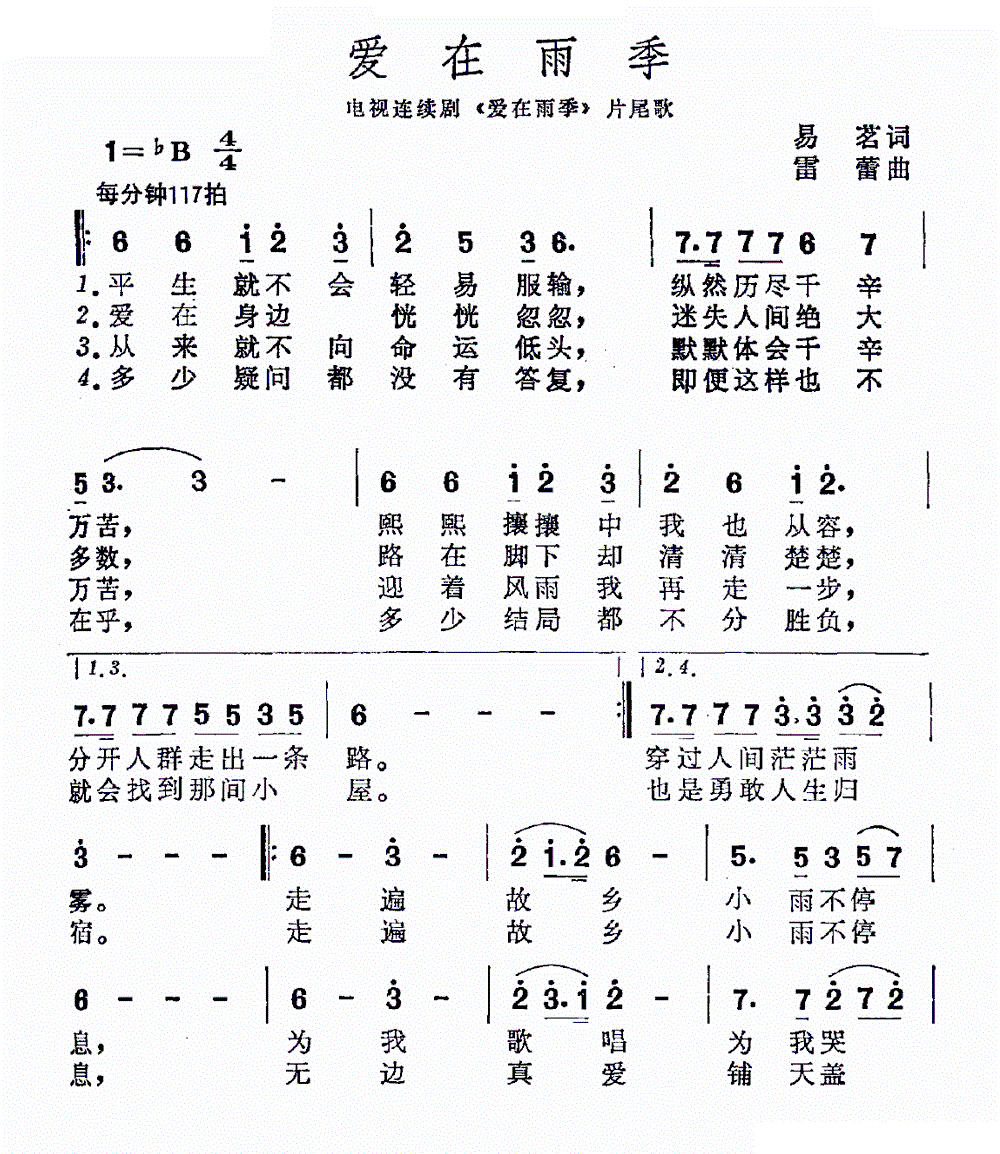 爱在雨季
电视连续剧《爱在雨季》片尾歌
1=♭B 4/4
易茗词
雷蕾曲
每分钟117拍
6 6 i̇ 2̇ 3̇ | 2̇ 5 3̇ 6. | 7.7 7 7 6 7 |
1.平生就不会轻易服输，纵然历尽千辛
2.爱在身边恍恍忽忽，迷失人间绝大
3.从来就不向命运低头，默默体会千辛
4.多少疑问都没有答复，即便这样也不
5 3. 3 - | 6 6 i̇ 2̇ 3̇ | 2̇ 6 i̇ 2̇. |
万苦，熙熙攘攘中我也从容，
多数，路在脚下却清清楚楚，
万苦，迎着风雨我再走一步，
在乎，多少结局都不分胜负，
1.3. 2.4.
7.7 7 7 5 5 3 5 | 6 - - - :| 7.7 7 7 3̇.3̇ 3̇ 2̇ |
分开人群走出一条路。穿过人间茫茫雨
就会找到那间小屋。也是勇敢人生归
3̇ - - - |: 6 - 3̇ - | 2̇ i̇.2̇ 6 - | 5. 5 3 5 7 |
雾。走遍故乡小雨不停
宿。走遍故乡小雨不停
6 - - - | 6 - 3̇ - | 2̇ 3̇.i̇ 2̇ - | 7. 7 2̇ 7 2̇ |
息，为我歌唱为我哭
息，无边真爱铺天盖